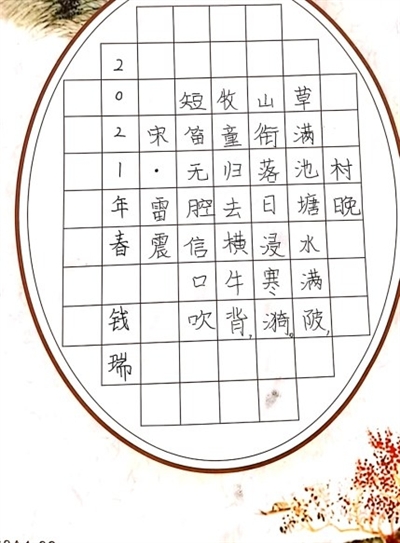 村晚
草满池塘水满陂,
山衔落日浸寒漪。
牧童归去横牛背,
短笛无腔信口吹
宋·雷震
2021年春 钱瑞